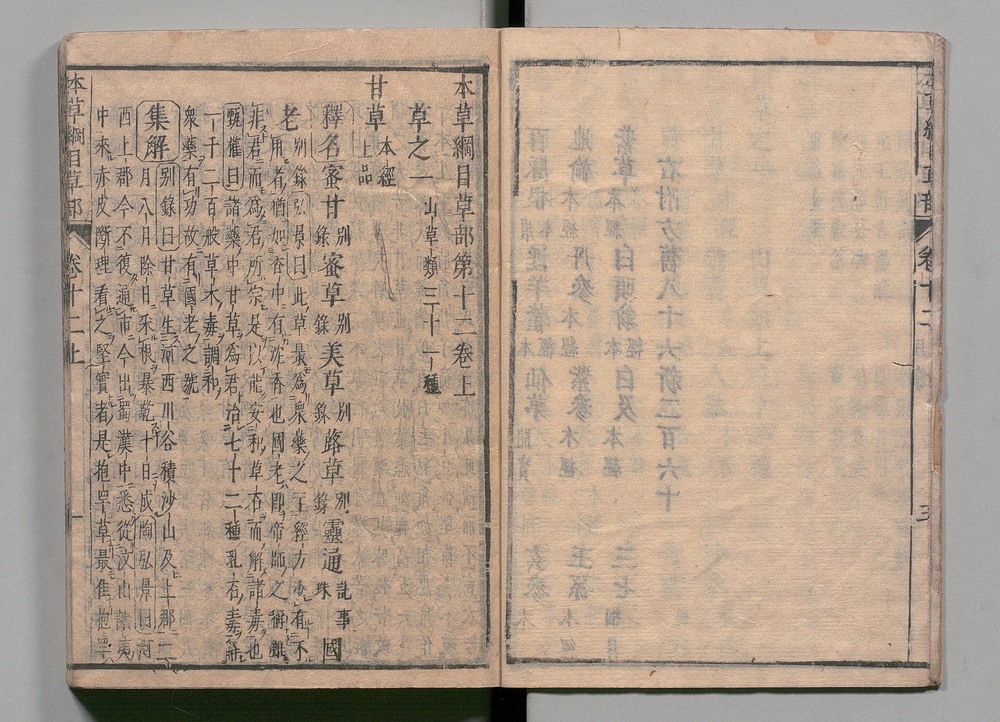 本草綱目草部第十二卷上
草之一 山草類三十一種
甘草 本經上品
釋名 蜜甘 别錄 蜜草 别錄 美草 别錄 蕗草 别錄 靈通 記事珠 國
老 别錄 弘景曰此草最爲衆藥之主經方少有不
用者猶如香中有沈香也國老卽帝師之稱雖
非君而爲君所宗是以能安和草石而解諸毒也
甄權曰諸藥中甘草爲君治七十二種乳石毒解
一千二百般草木毒調和
衆藥有功故有國老之號
集解 别錄曰甘草生河西川谷積沙山及上郡二
月八月除日采根暴乾十日成陶弘景曰河
西上郡今不復通市今出蜀漢中悉從汶山諸夷
中來赤皮斷理看之堅實者是抱罕草最佳抱罕
本草綱目草部 卷十二上 一
卷十二 三